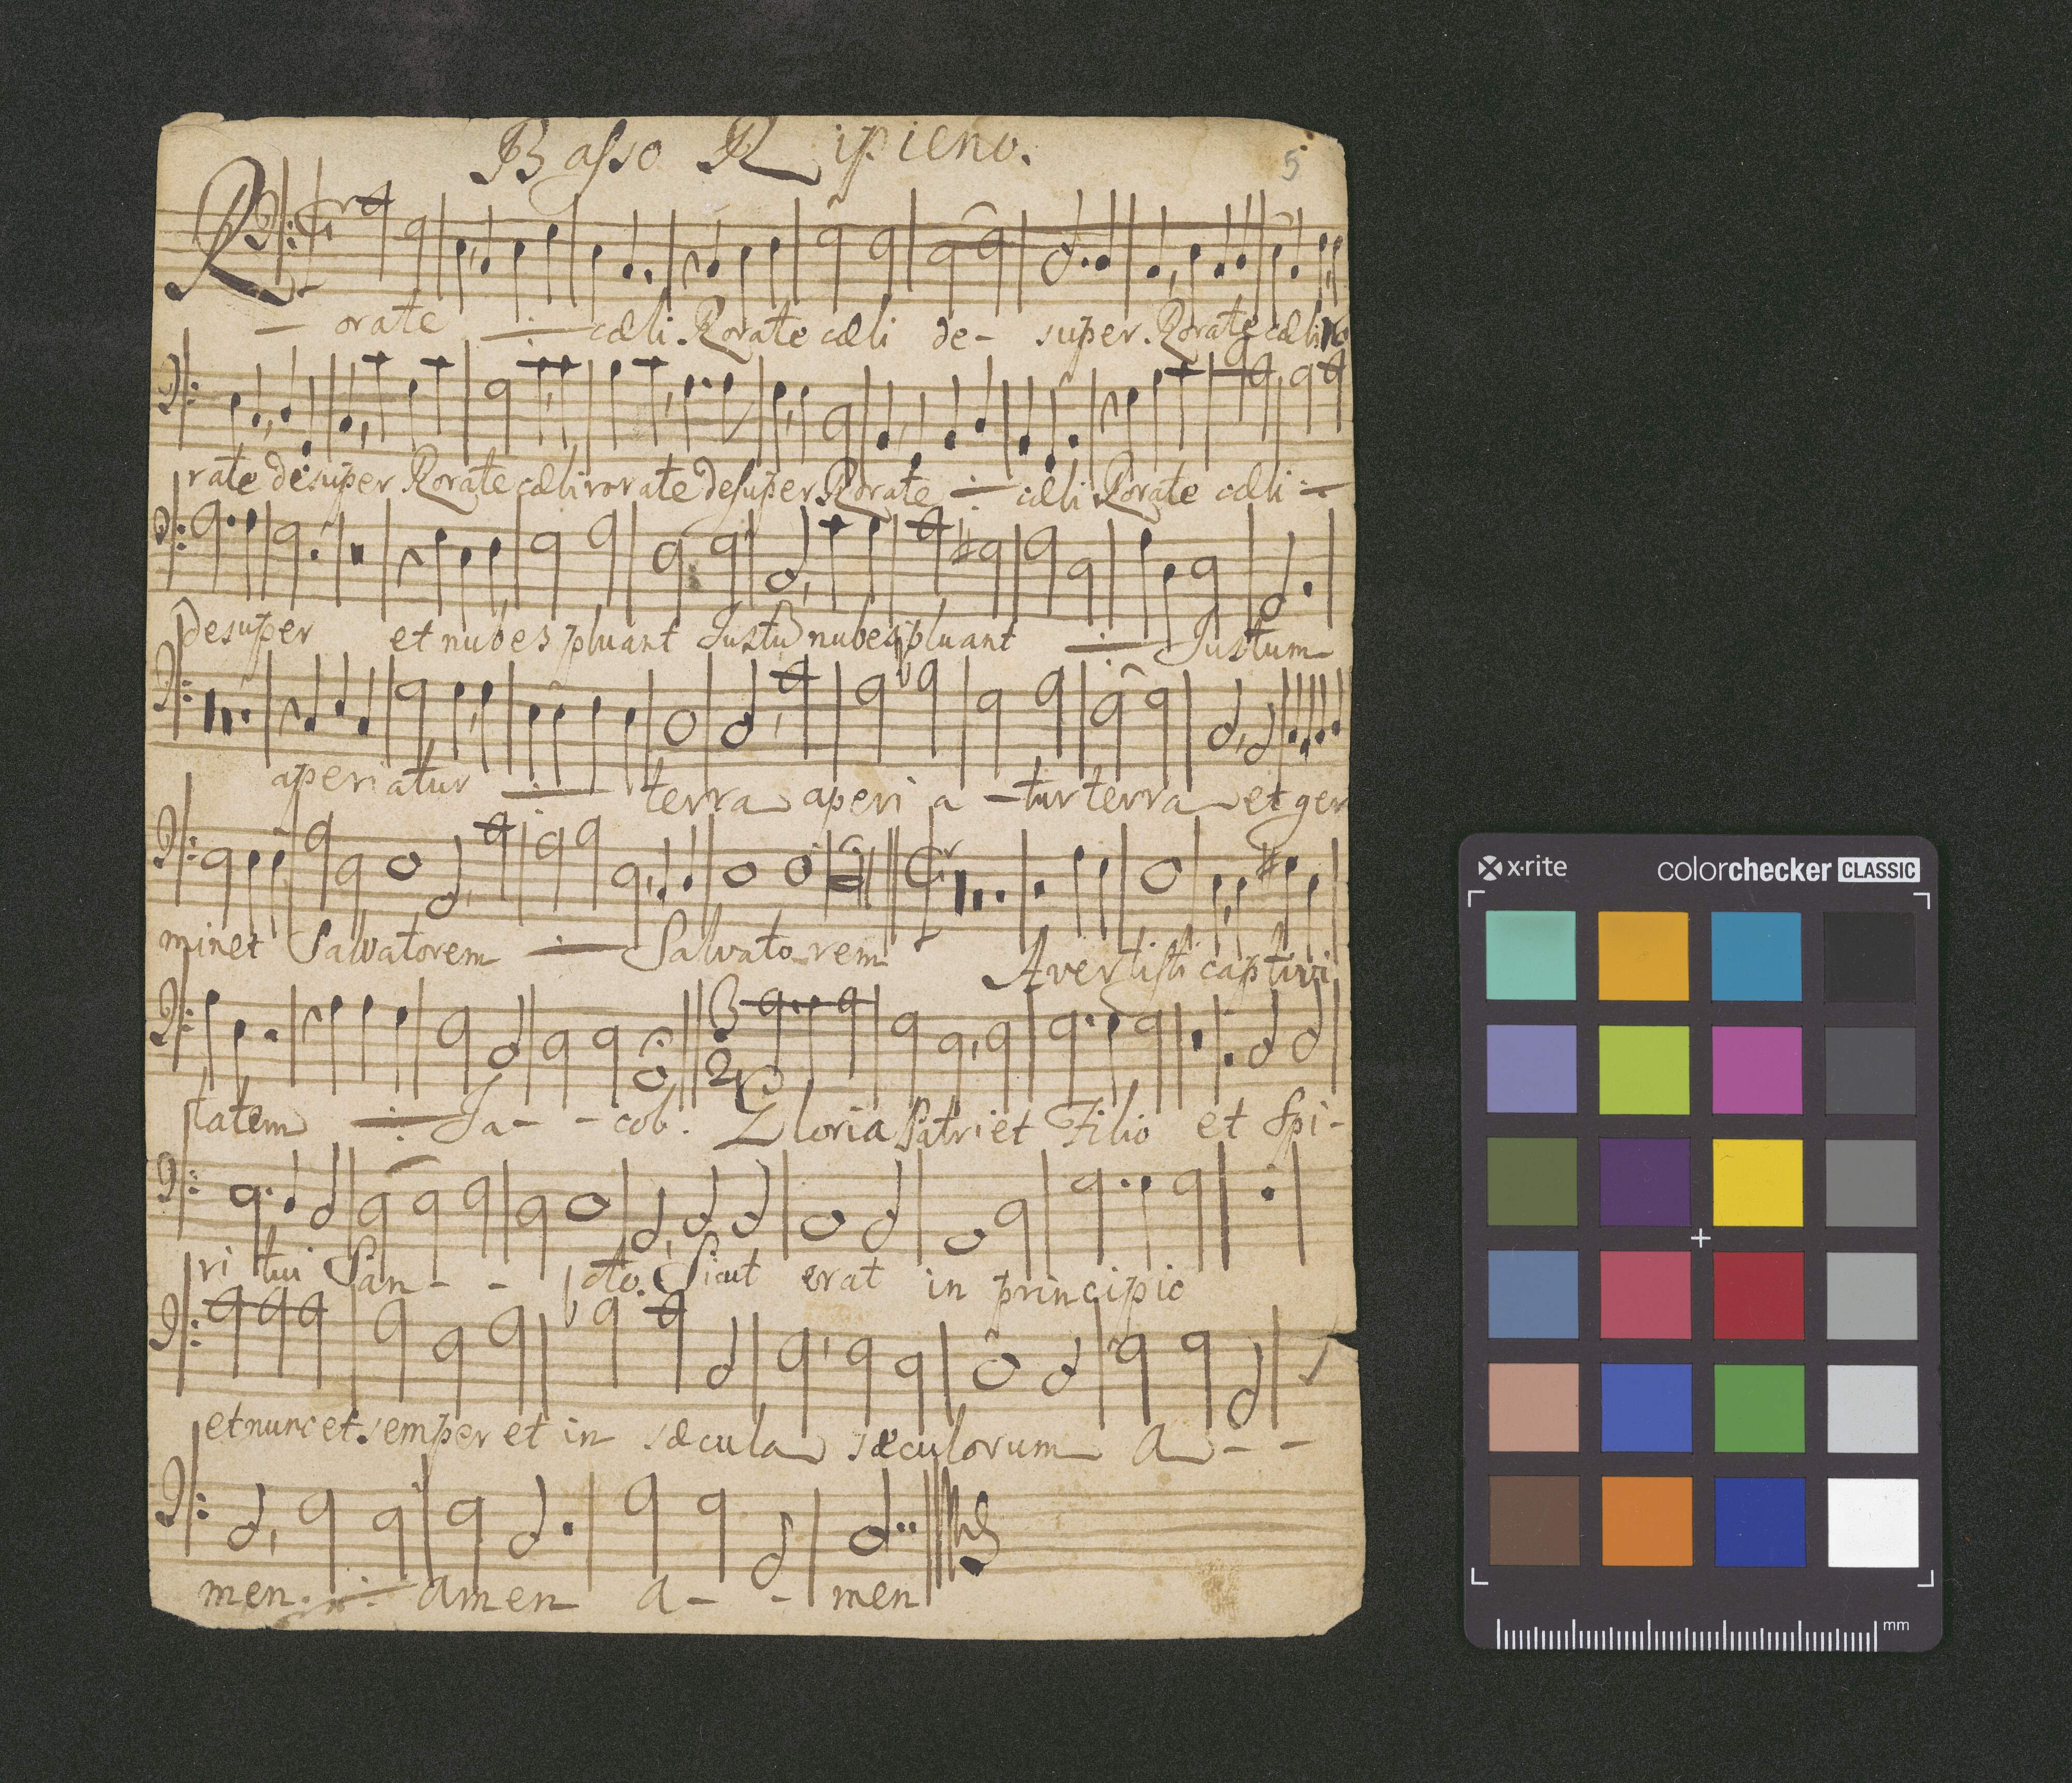 Basso Ripieno.
5
Rorate ∴ cæli. Rorate cæli de- super. Rorate cæli Ro
rate desuper Rorate cæli rorate desuper Rorate ∴ cæli Rorate cæli ∴
desuper et nubes pluant Justũ nubes pluant ∴ Justum
aperiatur ∴ terra aperi a - tur terra et ger
minet Salvatorem ∴ Salvato-rem Avertisti captivi
tatem ∴ Ja- - cob. Gloria Patri et Filio et Spi-
3
2
ri tui San - - cto. Sicut erat in principio
et nunc et semper et in sæcula sæculorum a - -
men. ∴ amen a- - men
x·rite
colorchecker CLASSIC
mm